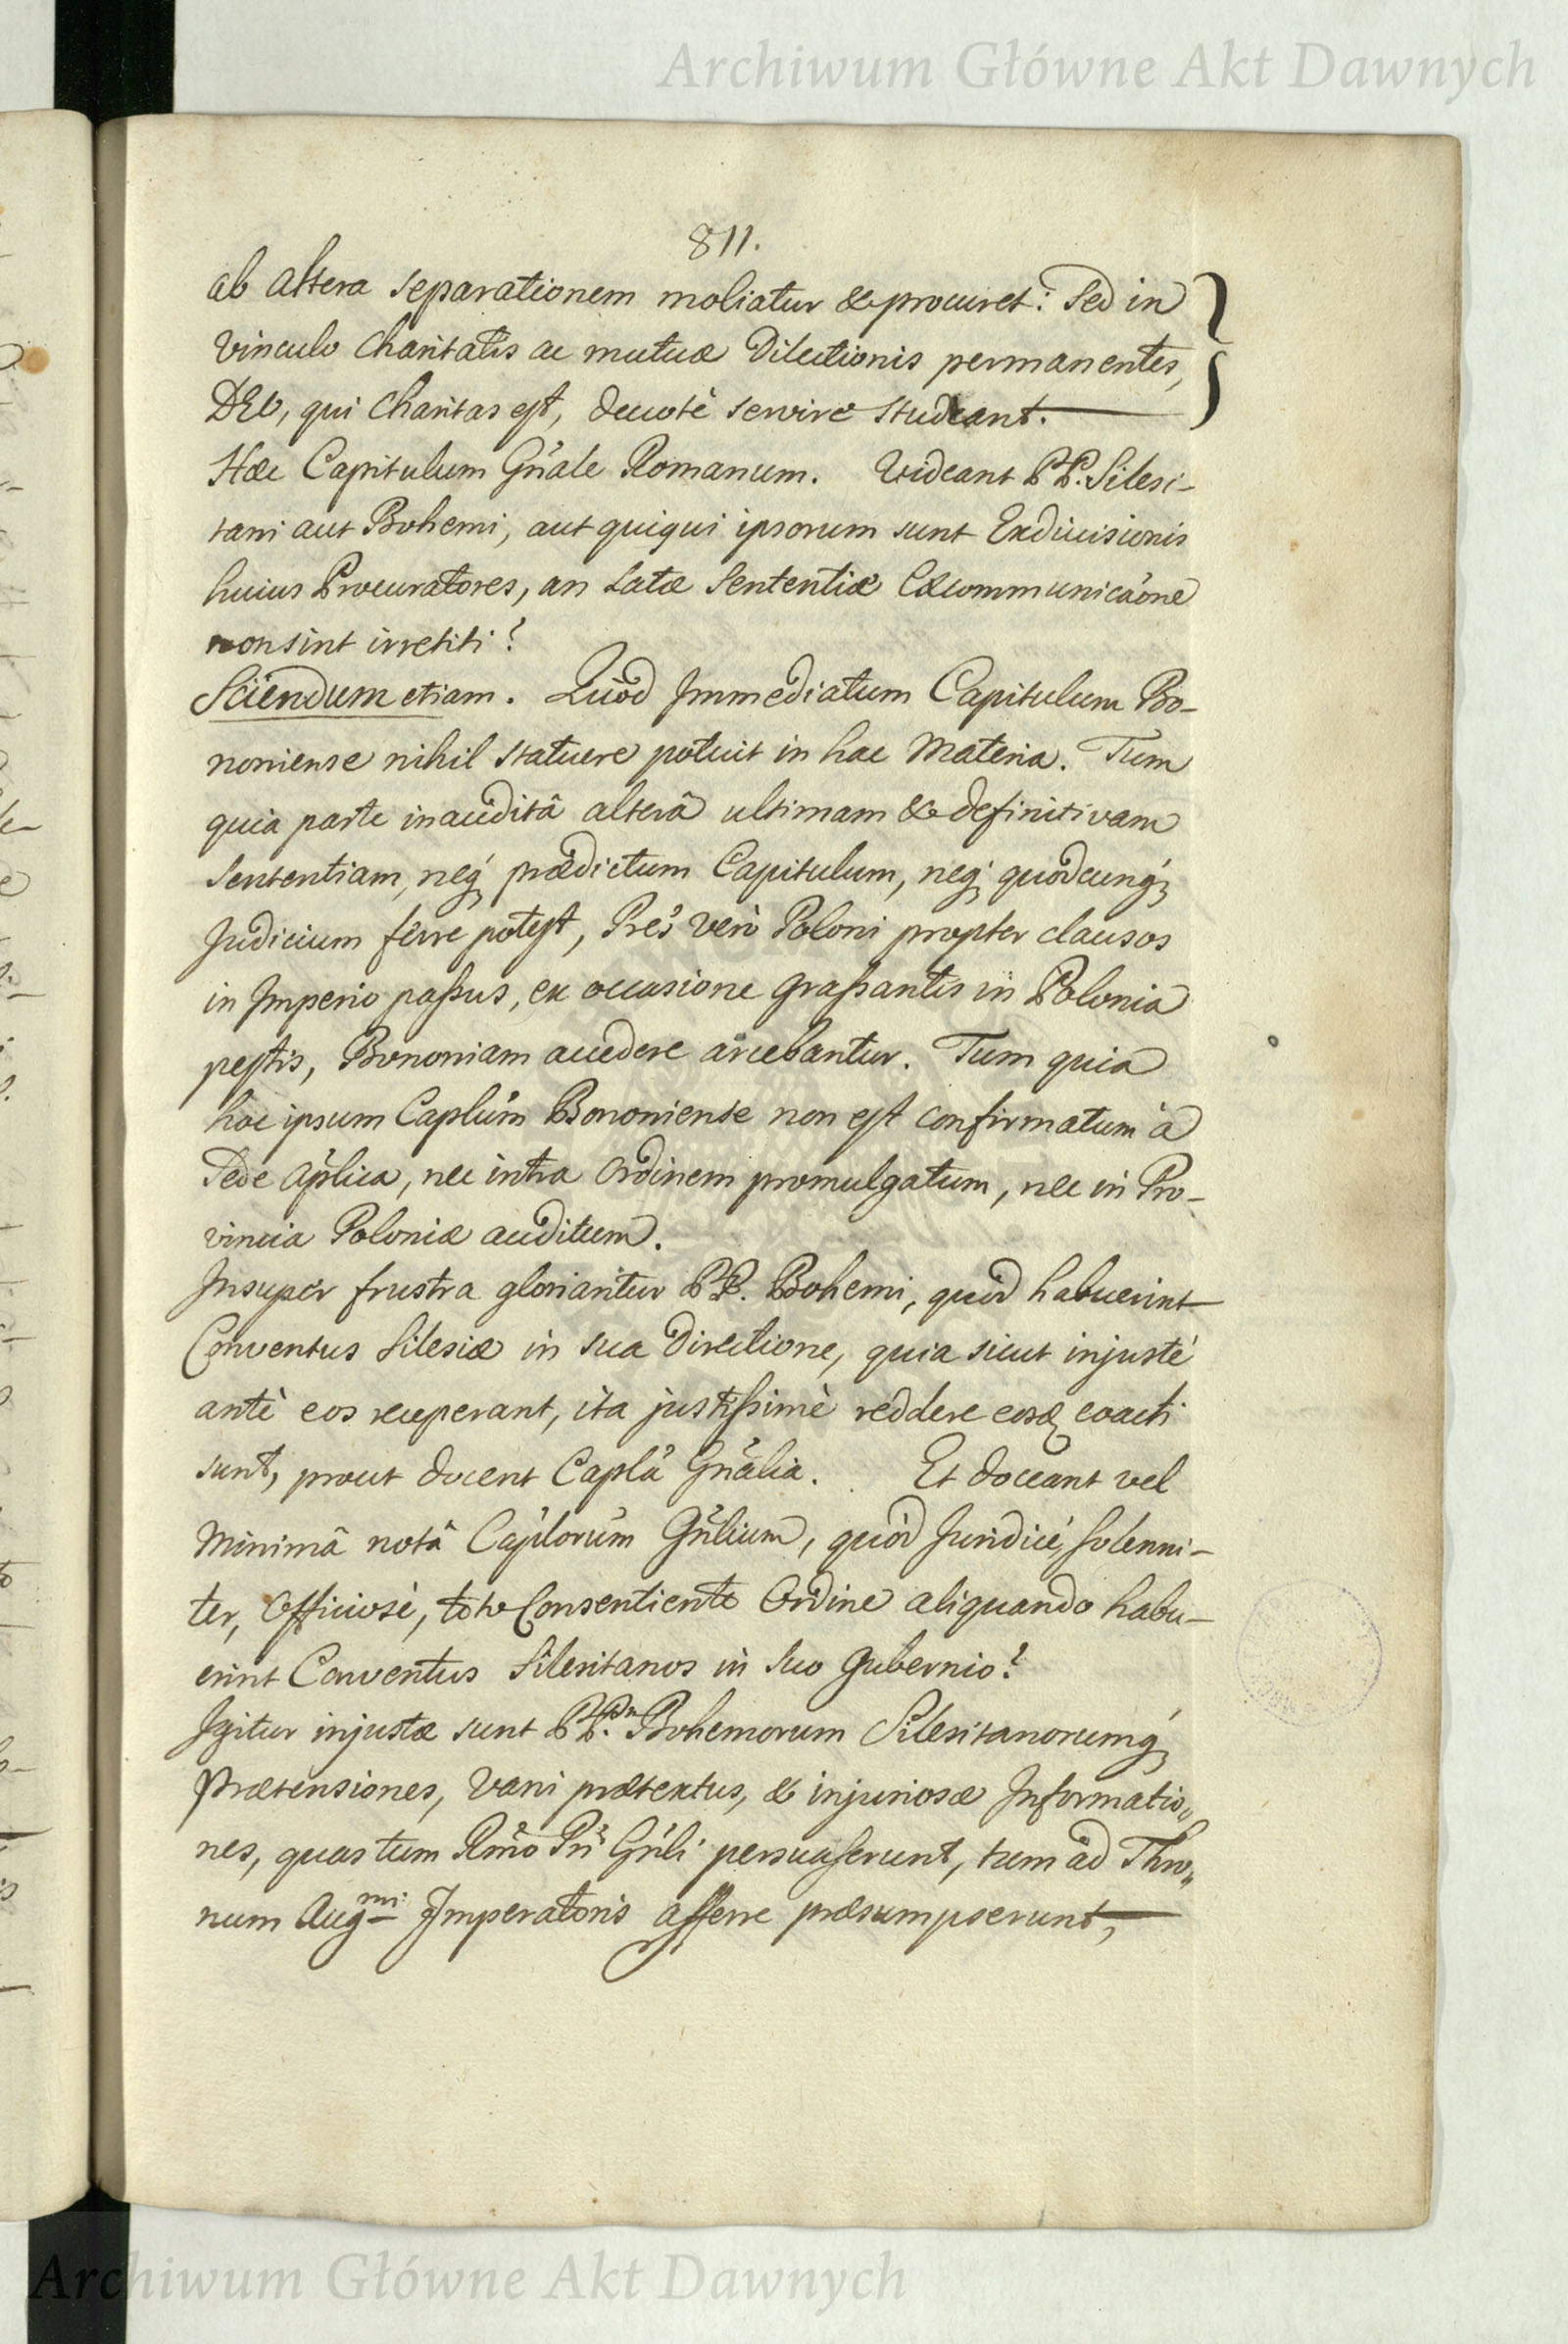 Archiwum Główne Akt Dawnych
811.
ab altera separationem moliatur & procuret: Sed in
vinculo Charitatis ac mutuæ Dilectionis permanentes,
DEO, qui Charitas est, devotè servire studeant.
Hæc Capitulum Gnãle Romanum. Videant PP. Silesi-
tani aut Bohemi, aut quiqui ipsorum sunt Exdivisionis
huius Procuratores, an Latæ Sententiæ Excommunicaõne
non sint irretiti?
Sciendum etiam. Quòd Immediatum Capitulum Bo-
noniense nihil statuere potuit in hac Materia. Tum
quia parte inauditâ alterâ ultimam & definitivam
Sententiam, neq́; prædictum Capitulum, neq́; quodcunq́;
Judicium ferre potest, Pr̃es verò Poloni propter clausos
in Imperio passus, ex occasione grassantis in Polonia
pestis, Bononiam accedere arcebantur. Tum quia
hoc ipsum Caplũm Bononiense non est confirmatum à
Sede Aplica, nec intra Ordinem promulgatum, nec in Pro-
vincia Poloniæ auditum.
Insuper frustra gloriantur PP. Bohemi, quòd habuerint
Conventus Silesiæ in sua Directione, quia sicut injustè
antè eos receperant, ita justissimè reddere eosq; coacti
sunt, prout docent Caplã Gnãlia. Et doceant vel
Minimâ notâ Caplorũm Gñlium, quòd Juridicè, solenni-
ter, Officiosè, toto Consentiente Ordine aliquando habu-
erint Conventus Silesitanos in suo Gubernio?
Igitur injustæ sunt PP.ũm Bohemorum Silesitanorumq́;
Prætensiones, Vani prætextus, & injuriosæ Informatio„
nes, quas tum Rm̃o Pr̃i Gñli persuaserunt, tum ad Thro„
num Aug^mi: Imperatoris afferre præsumpserunt,
Archiwum Główne Akt Dawnych